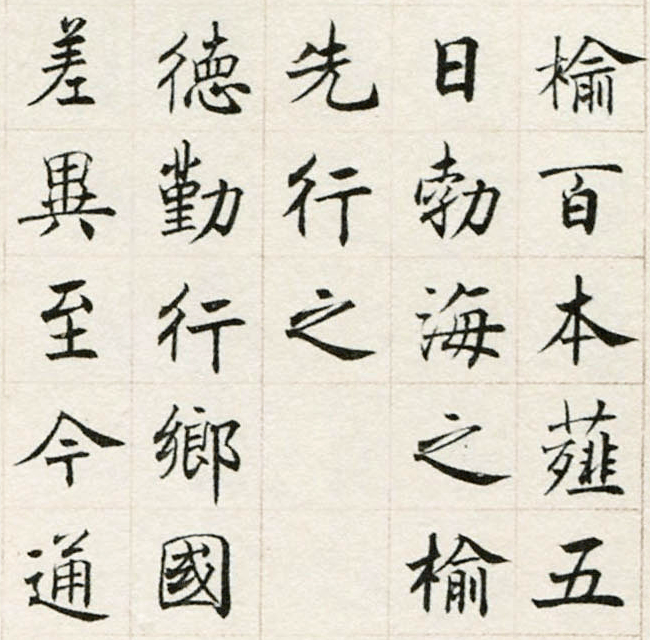 榆百本薤五
日勃海之榆
先行之
德勤行鄉國
差異至今通